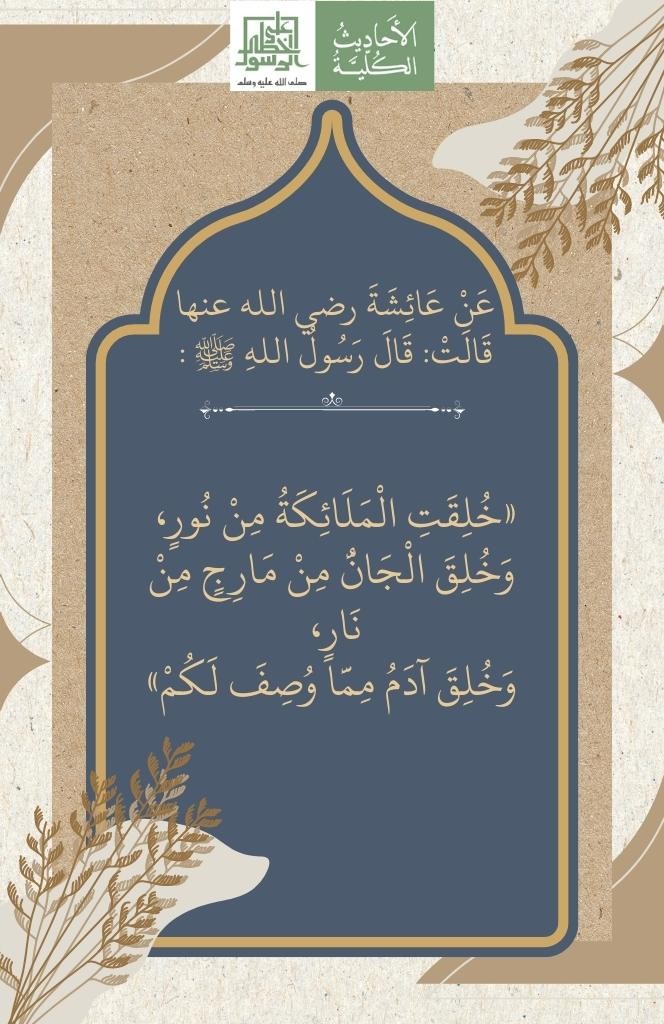 الأَحَادِيثُ
الكُلِّيَّةُ
على
خطى
الرسول
صلى الله عليه وسلم
عَنْ عَائِشَةَ رضي الله عنها
قَالَتْ: قَالَ رَسُولُ اللهِ ﷺ :
«خُلِقَتِ الْمَلَائِكَةُ مِنْ نُورٍ،
وَخُلِقَ الْجَانُّ مِنْ مَارِجٍ مِنْ
نَارٍ،
وَخُلِقَ آدَمُ مِمّا وُصِفَ لَكُمْ»